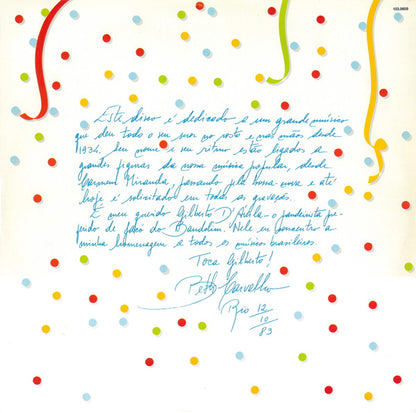 103.0609
Este disco é dedicado a um grande músico
que deu todo o seu suor no rosto e nas mãos desde
1934. Seu nome e seu ritmo estão ligados a
grandes figuras da nossa música popular, desde
Carmem Miranda, passando pela bossa nova e até
hoje é solicitado em todas as gravações.
É meu querido Gilberto D'Ávila - o pandeirista pre-
ferido de Jacó do Bandolim. Nele eu concentro a
minha homenagem a todos os músicos brasileiros.
Toca Gilberto!
Beth Carvalho
Rio 12
10
83